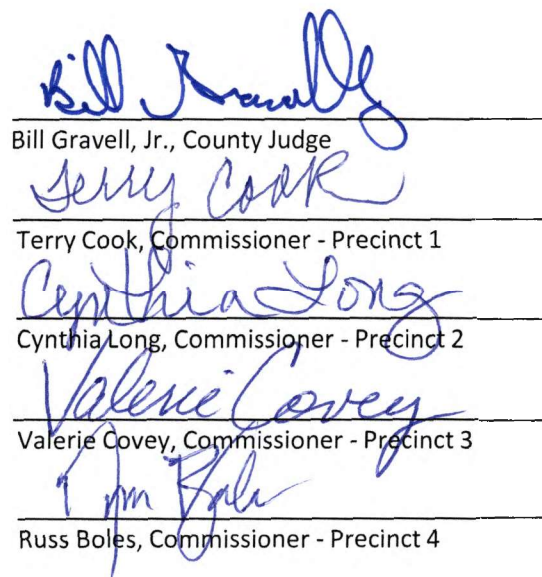 Bill Gravell
Bill Gravell, Jr., County Judge
Terry Cook
Terry Cook, Commissioner - Precinct 1
Cynthia Long
Cynthia Long, Commissioner - Precinct 2
Valerie Covey
Valerie Covey, Commissioner - Precinct 3
Russ Boles, Commissioner - Precinct 4